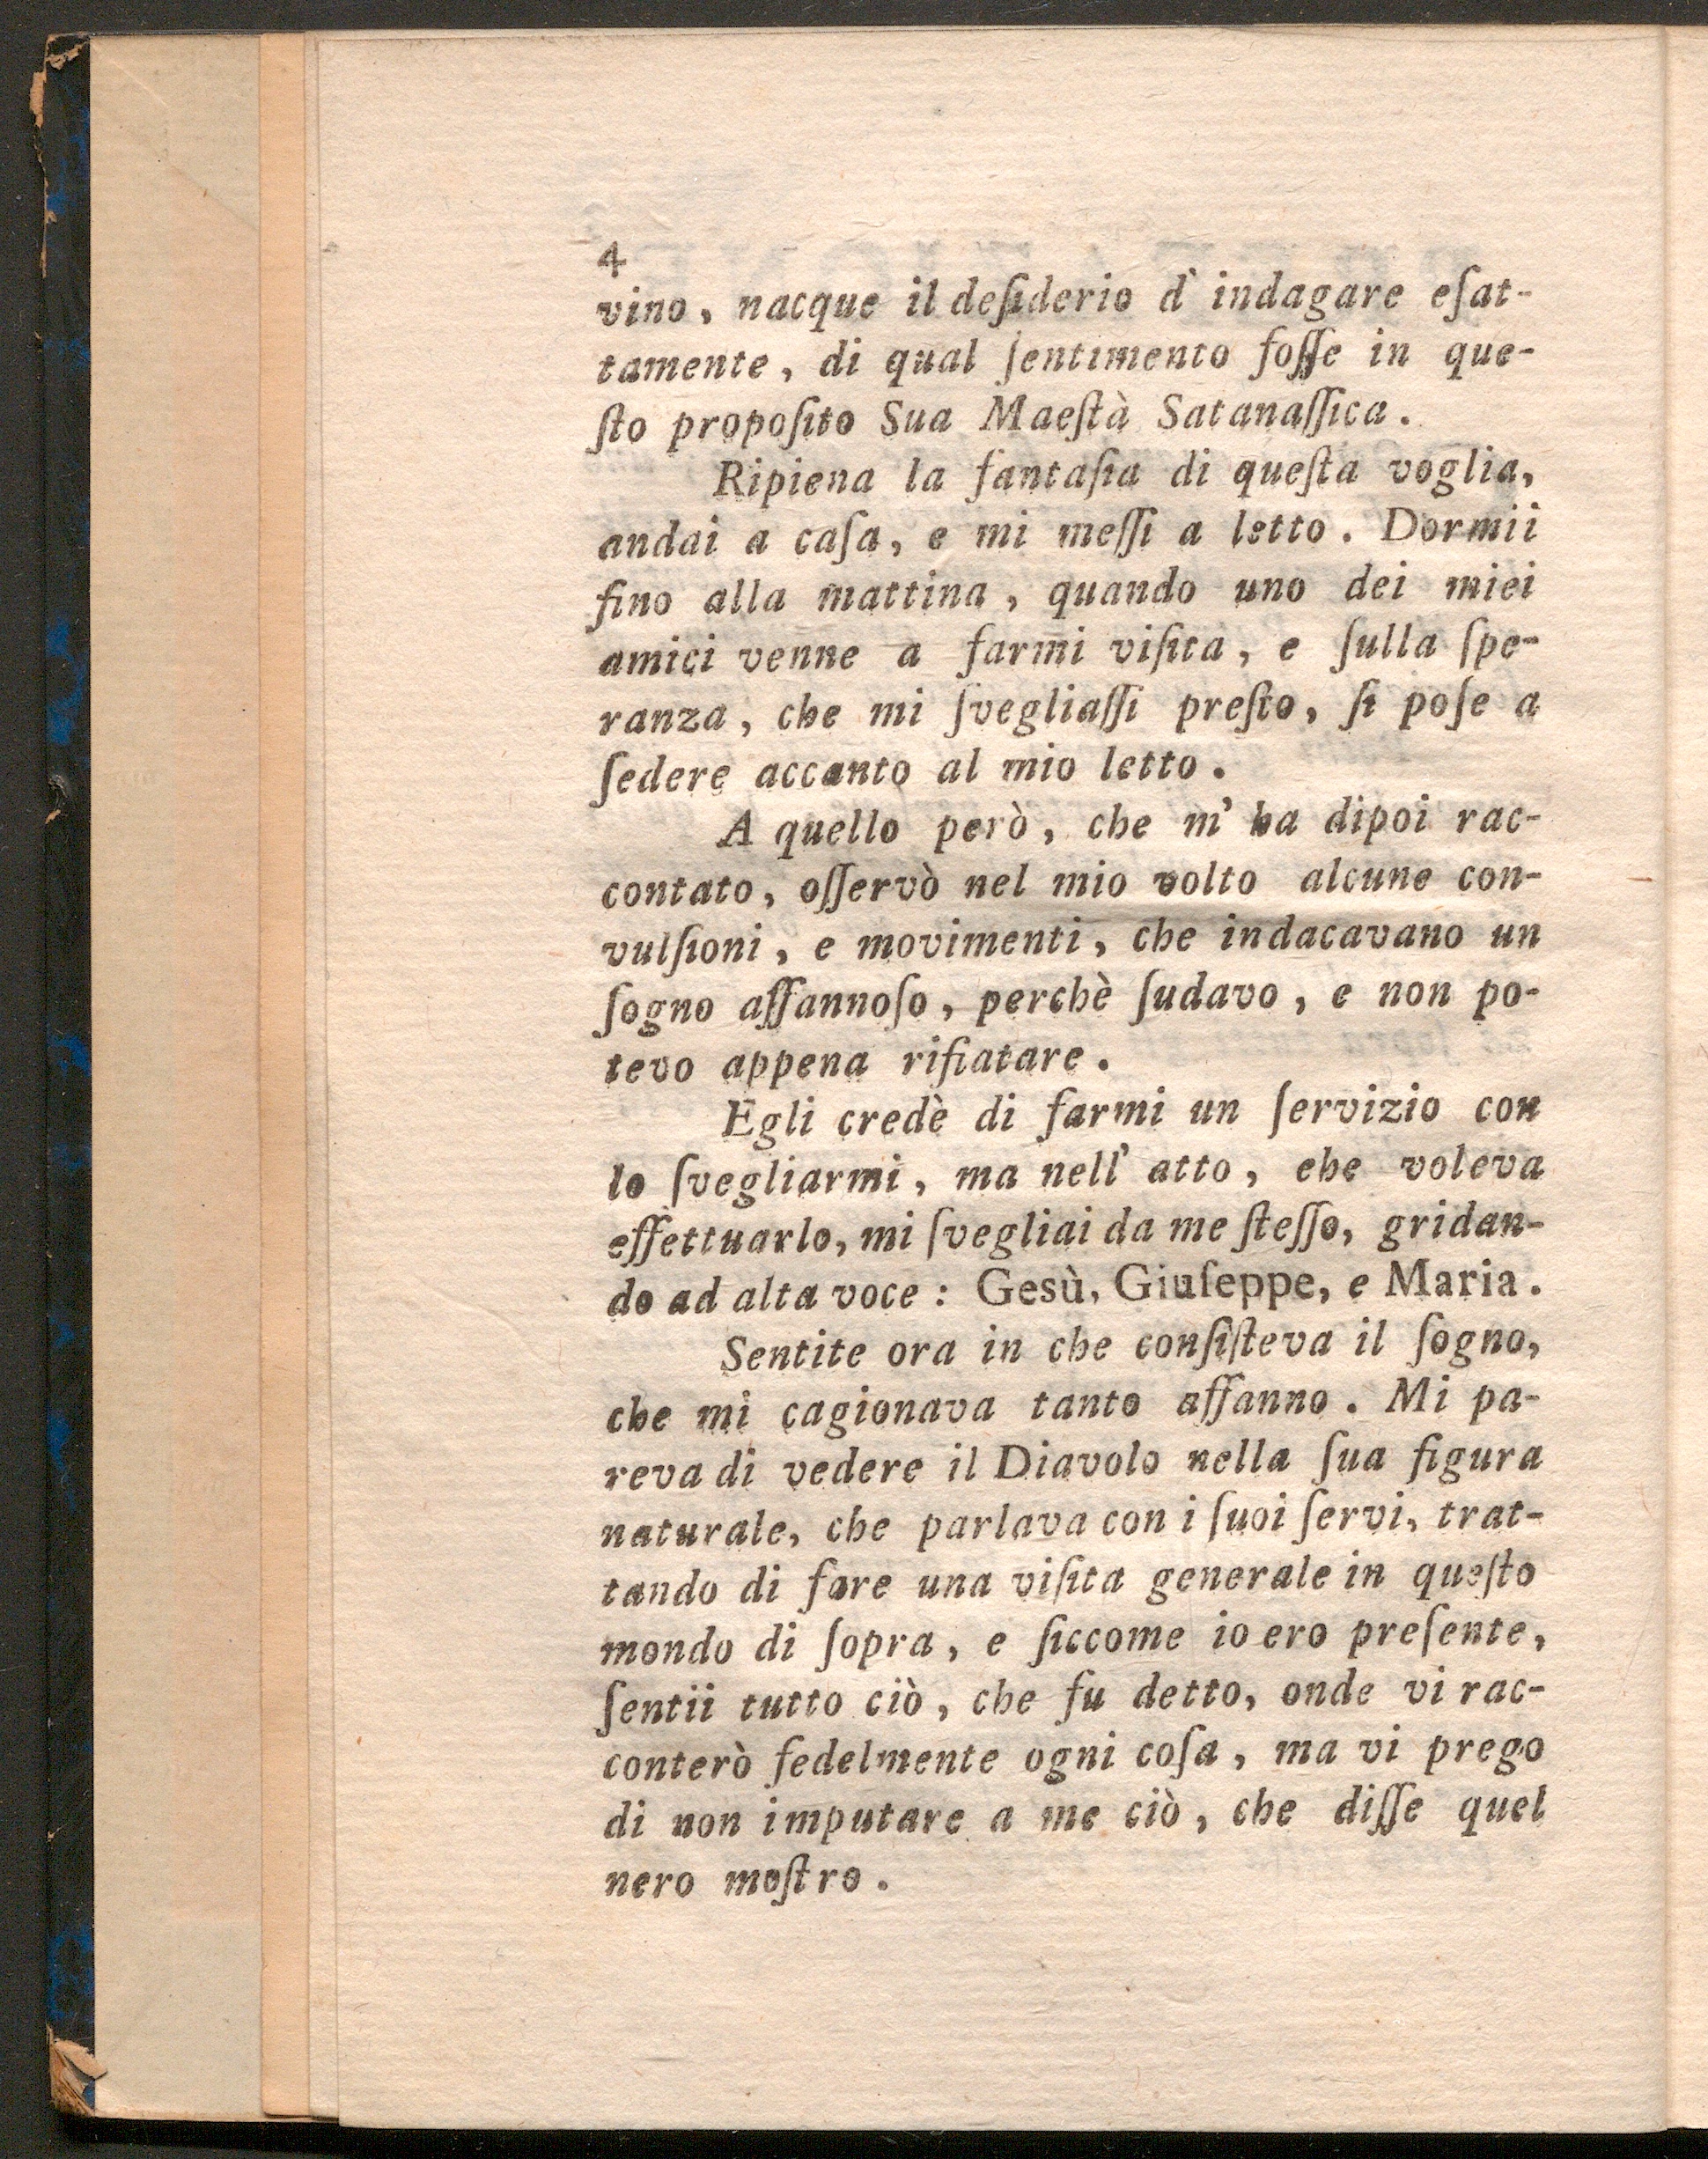 4
vino, nacque il deſiderio d' indagare eſat-
tamente, di qual ſentimento foſſe in que-
ſto propoſito Sua Maeſtà Satanaſſica.
Ripiena la fantaſia di queſta voglia,
andai a caſa, e mi meſſi a letto. Dormii
fino alla mattina, quando uno dei miei
amici venne a farmi viſita, e ſulla ſpe-
ranza, che mi ſvegliaſſi preſto, ſi poſe a
ſedere accanto al mio letto.
A quello però, che m' ha dipoi rac-
contato, oſſervò nel mio volto alcune con-
vulſioni, e movimenti, che indacavano un
ſogno affannoſo, perchè ſudavo, e non po-
tevo appena rifiatare.
Egli credè di farmi un ſervizio con
lo ſvegliarmi, ma nell' atto, che voleva
effettuarlo, mi ſvegliai da me ſteſſo, gridan-
do ad alta voce: Gesù, Giuſeppe, e Maria.
Sentite ora in che conſiſteva il ſogno,
che mi cagionava tanto affanno. Mi pa-
reva di vedere il Diavolo nella ſua figura
naturale, che parlava con i ſuoi ſervi, trat-
tando di fare una viſita generale in queſto
mondo di ſopra, e ſiccome io ero preſente,
ſentii tutto ciò, che fu detto, onde vi rac-
conterò fedelmente ogni coſa, ma vi prego
di non imputare a me ciò, che diſſe quel
nero moſtro.